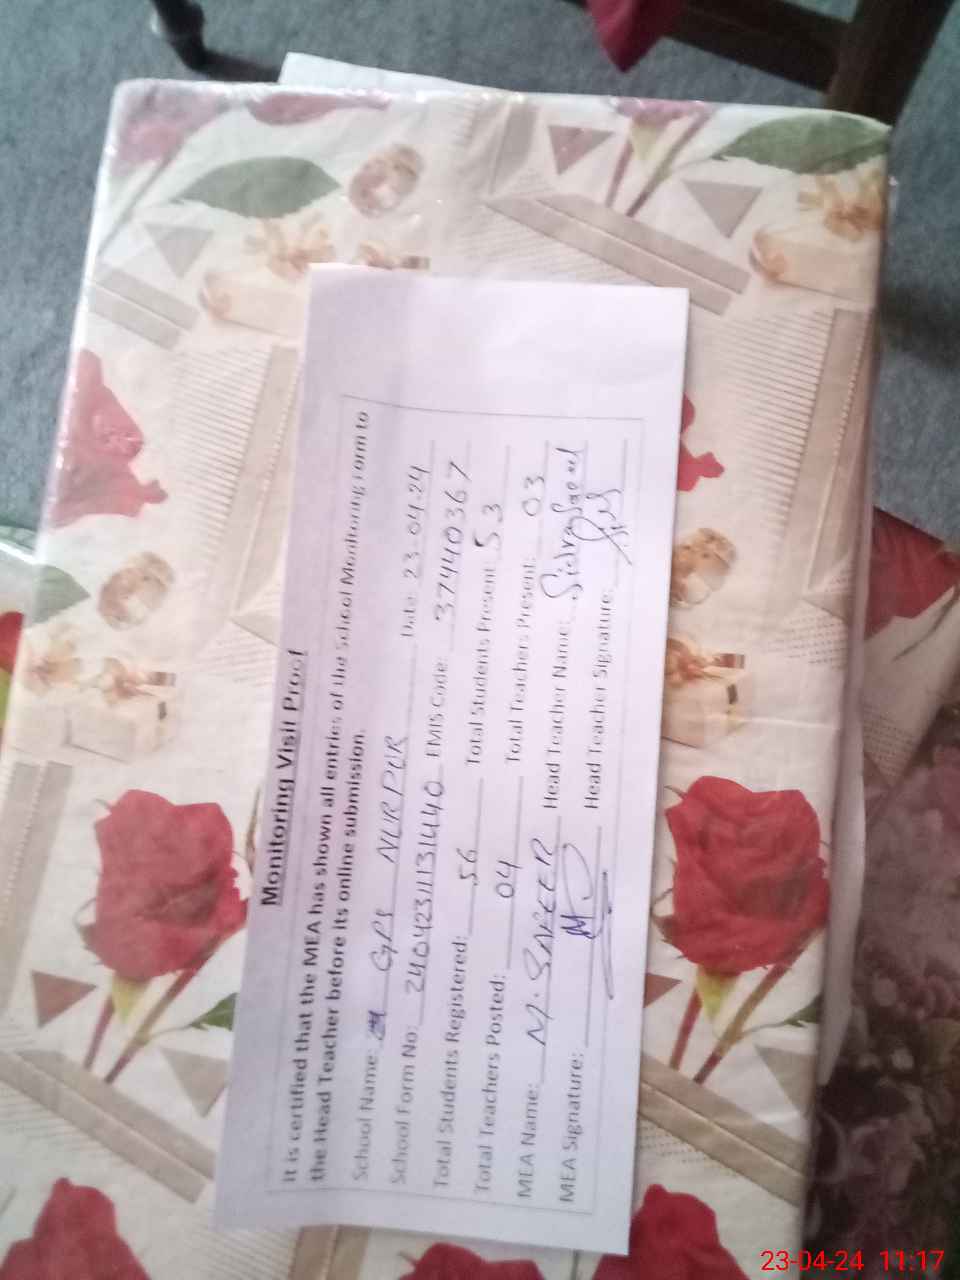 Monitoring Visit Proof
It is certified that the MEA has shown all entries of the School Monitoring Form to
the Head Teacher before its online submission.
School Name: GPS NURPUR Date: 23.04.24
School Form No: EMIS Code: 37440367
Total Students Registered: 56 Total Students Present: 53
Total Teachers Posted: 04 Total Teachers Present: 03
MEA Name: M. SAFEER Head Teacher Name:
MEA Signature: Head Teacher Signature:
23-04-24 11:17